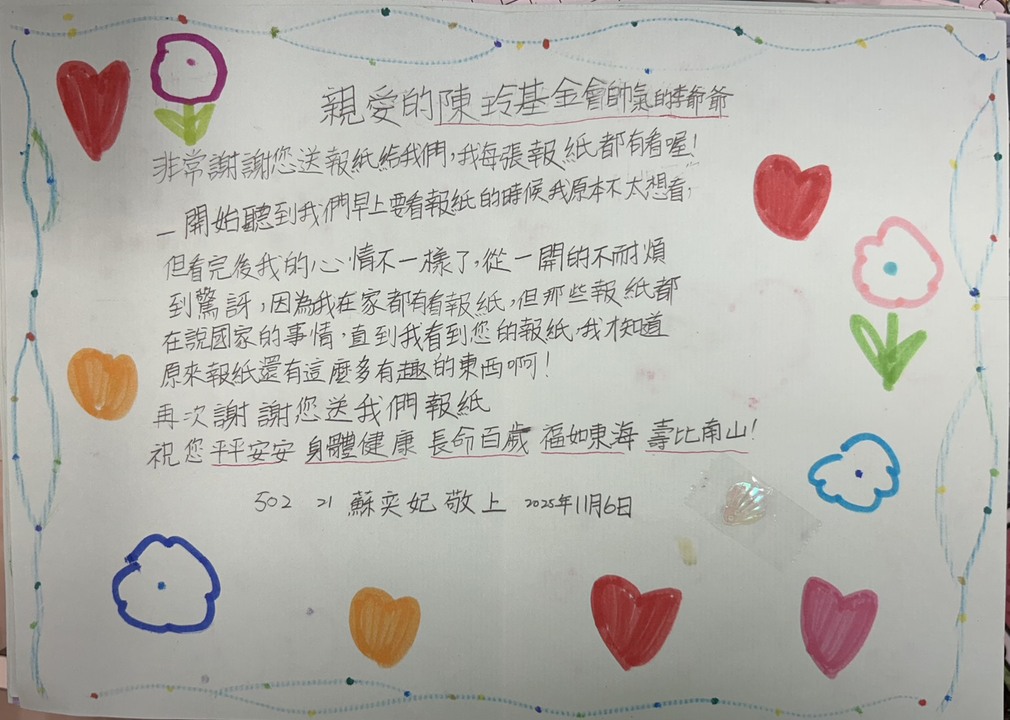 親愛的陳玲基金會帥氣的李爺爺
非常謝謝您送報紙給我們,我每張報紙都有看喔!
一開始聽到我們早上要看報紙的時候我原本不太想看,
但看完後我的心情不一樣了,從一開的不耐煩
到驚訝,因為我在家都有看報紙,但那些報紙都
在說國家的事情,直到我看到您的報紙,我才知道
原來報紙還有這麼多有趣的東西啊!
再次謝謝您送我們報紙
祝您平平安安 身體健康 長命百歲 福如東海 壽比南山!
502 21 蘇奕妃敬上 2025年11月6日